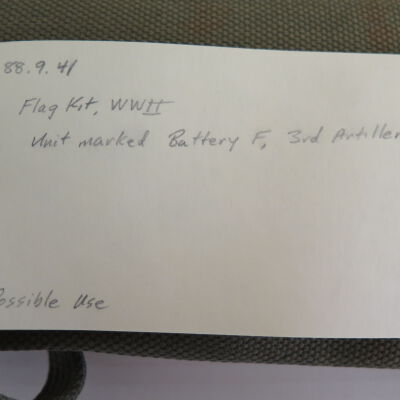 88.9.41
Flag Kit, WWII
Unit marked Battery F, 3rd Artiller
Possible Use